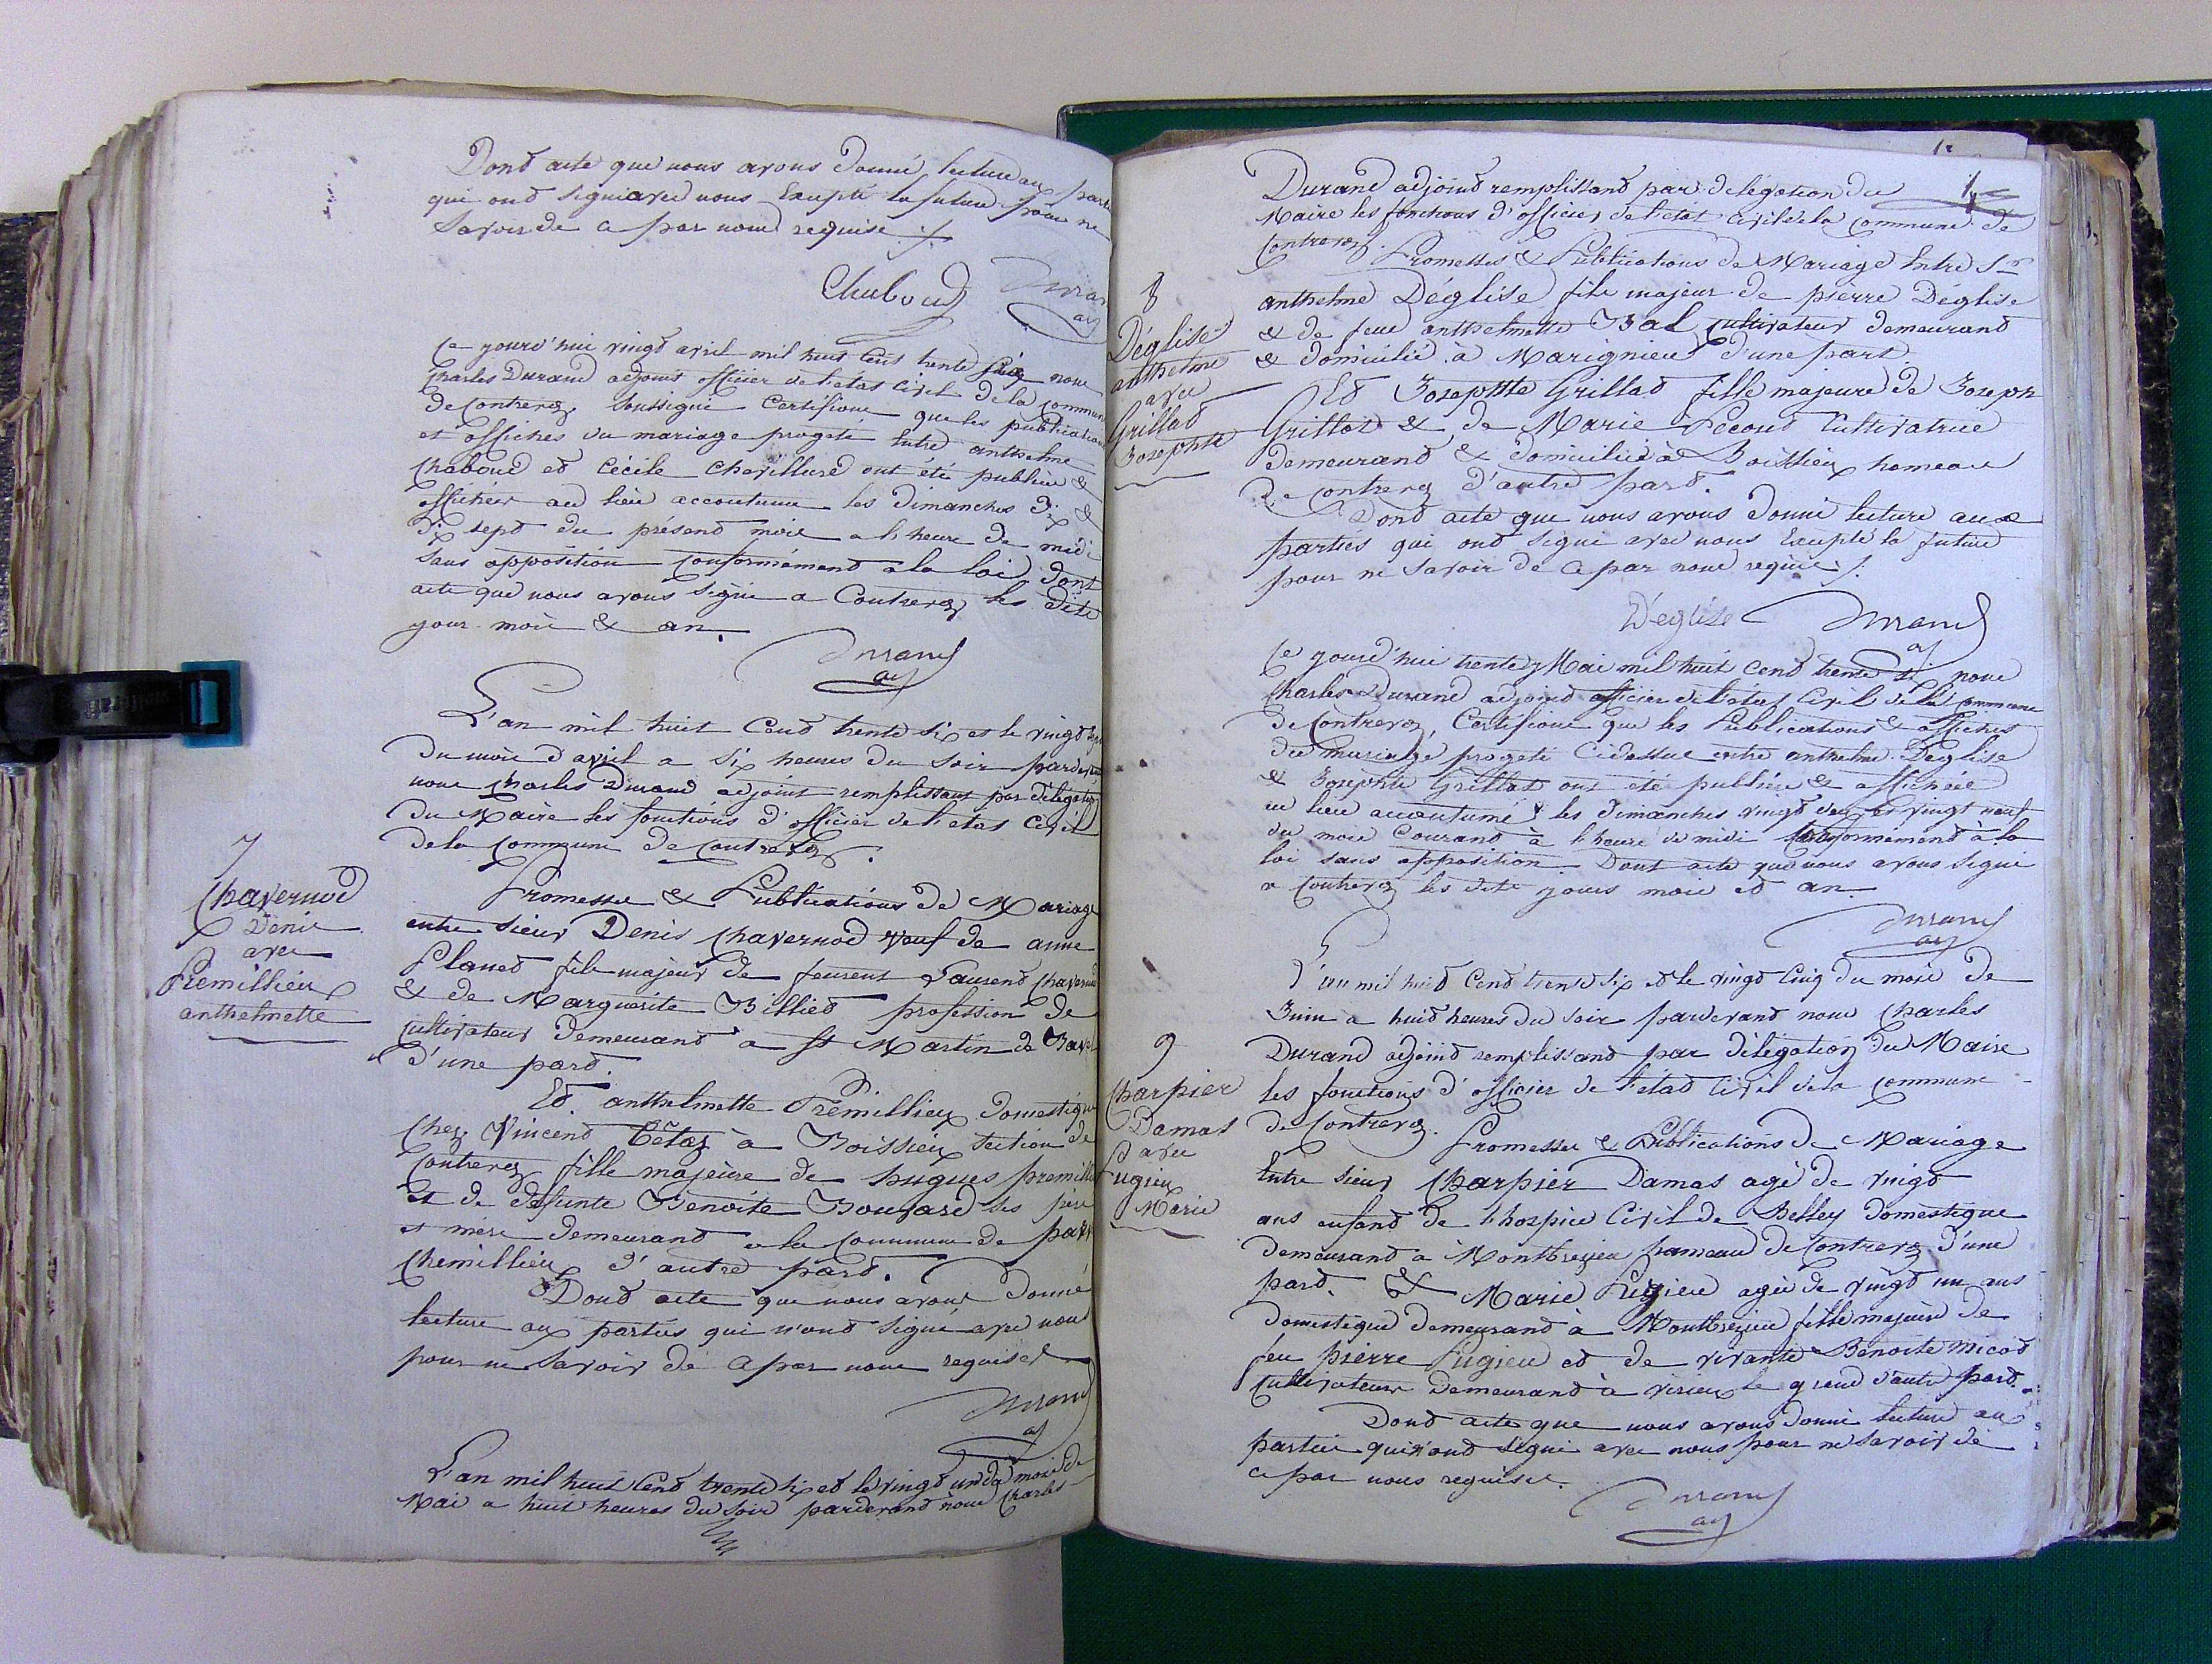 Dond acte que nous avons donné lecture aux parti
qui ond signé avec nous Excepté la future pour ne
Savoir de ce par nous requise ./.
Chaboud Duran
aj
Ce jourd'hui vingd avril mil huit Cent trente six nous
Charles Durand adjoint officier de l'état Civil de la commun
de Contrevoz soussigné Certifions que les publication
et affiches du mariage progeté Entre anthelme
Chaboud ed Cécile Chevillard ont été publiée &
affichée au lieu accoutumé les dimanches dix &
dix sepd du présend mois a l'heure de midi
sans opposition conformémend a la loi, dont
acte que nous avons signé a Contrevoz les dits
jour mois & an.
Durand
aj
L'an mil huit Cend trente six et le vingd
du mois d'avril a six heures du soir pardevan
nous Charles Durand adjoint remplissant par délégation
du Maire les fonctions d'officier de l'état Civil
de la Commune de Contrevoz.
7
Chavernod
Denis
avec
Premillieu
anthelmette
Promesse & Publications de Mariage
entre sieur Denis Chavernod veuf de anne
Planed fils majeur de Laurend Chavernod
& de Marguerite Billied profession de
Cultivateur demeurand a St Martin de Bavel
d'une pard.
Ed. anthelmette Premillieu domestique
Chez Vincend Tétaz à Boissieu section de
Contrevoz fille majeure de hugues premillie
et de défunte Benoite Bougard ses père
et mère demeurand a la Commune de parve
Chemillieu d'autre pard.
Dond acte que nous avons Donné
lecture aux parties qui n'ond signé avec nous
pour ne savoir de ce par nous requises
Durand
aj
L'an mil huit Cend trente six ed le vingd un du mois de
Mai a huit heures du soir pardevand nous Charles
Durand adjoind remplissand par délégation du
Maire les fonctions d'officier de l'état civil de la Commune de
Contrevoz.
Promesses & Publications de Mariage Entre Sr
8
Déglise
anthelme
avec
Grillad
Josephte
anthelme Déglise fils majeur de pierre Déglise
& de feue anthelmette Bal cultivateur demeurand
& domicilié à Marignieu d'une part
Ed Josephte Grillad fille majeure de Joseph
Grillat & de Marie Pécoud Cultivatrice
demeurand & domicilié à Boissieu hameau
de Contrevoz d'autre pard.
Dond acte que nous avons donné lecture aux
parties qui ond signé avec nous Excepté la future
pour ne savoir de ce par nous requise ./.
Déglise Durand
aj
Ce jourd'hui trente Mai mil huit cend trente six nous
Charles Durand adjoind officier de l'état Civil de la commune
de Contrevoz, Certifions que les Publications & affiches
du mariage progeté Cidessus entre anthelme Déglise
& Josephte Grillat ont été publiée & affichée
au lieu accoutumé les dimanches vingd deux & vingt neuf
du mois Courand à l'heure de midi conformémend à la
loi sans opposition. Dont acte que nous avons signé
a Contrevoz les dits jours mois ed an
Durand
aj
L'an mil huid Cend trente six ed le vingd Cinq du mois de
Juin a huid heures du soir pardevand nous Charles
9
Charpier
Damas
avec
Pugieu
Marie
Durand adjoind remplissand par délégation du Maire
les fonctions d'officier de l'étad Civil de la commune
de Contrevoz. Promesse & Publications de Mariage
Entre sieur Charpier Damas agé de vingd
ans enfand de l'hospice Civil de Belley domestique
demeurand à Montbreyzieu hameau de Contrevoz d'une
pard. & Marie Pugieu agée de vingd un ans
domestique demeurand à Montbreyzieu fille majeure de
feu pierre Pugieu ed de vivante Benoite micod
Cultivateurs demeurand à virieu le grand d'autre pard.
Dond acte que nous avons donné lecture aux
parties qui n'ond signé avec nous pour ne savoir de
ce par nous requises.
Durand
aj